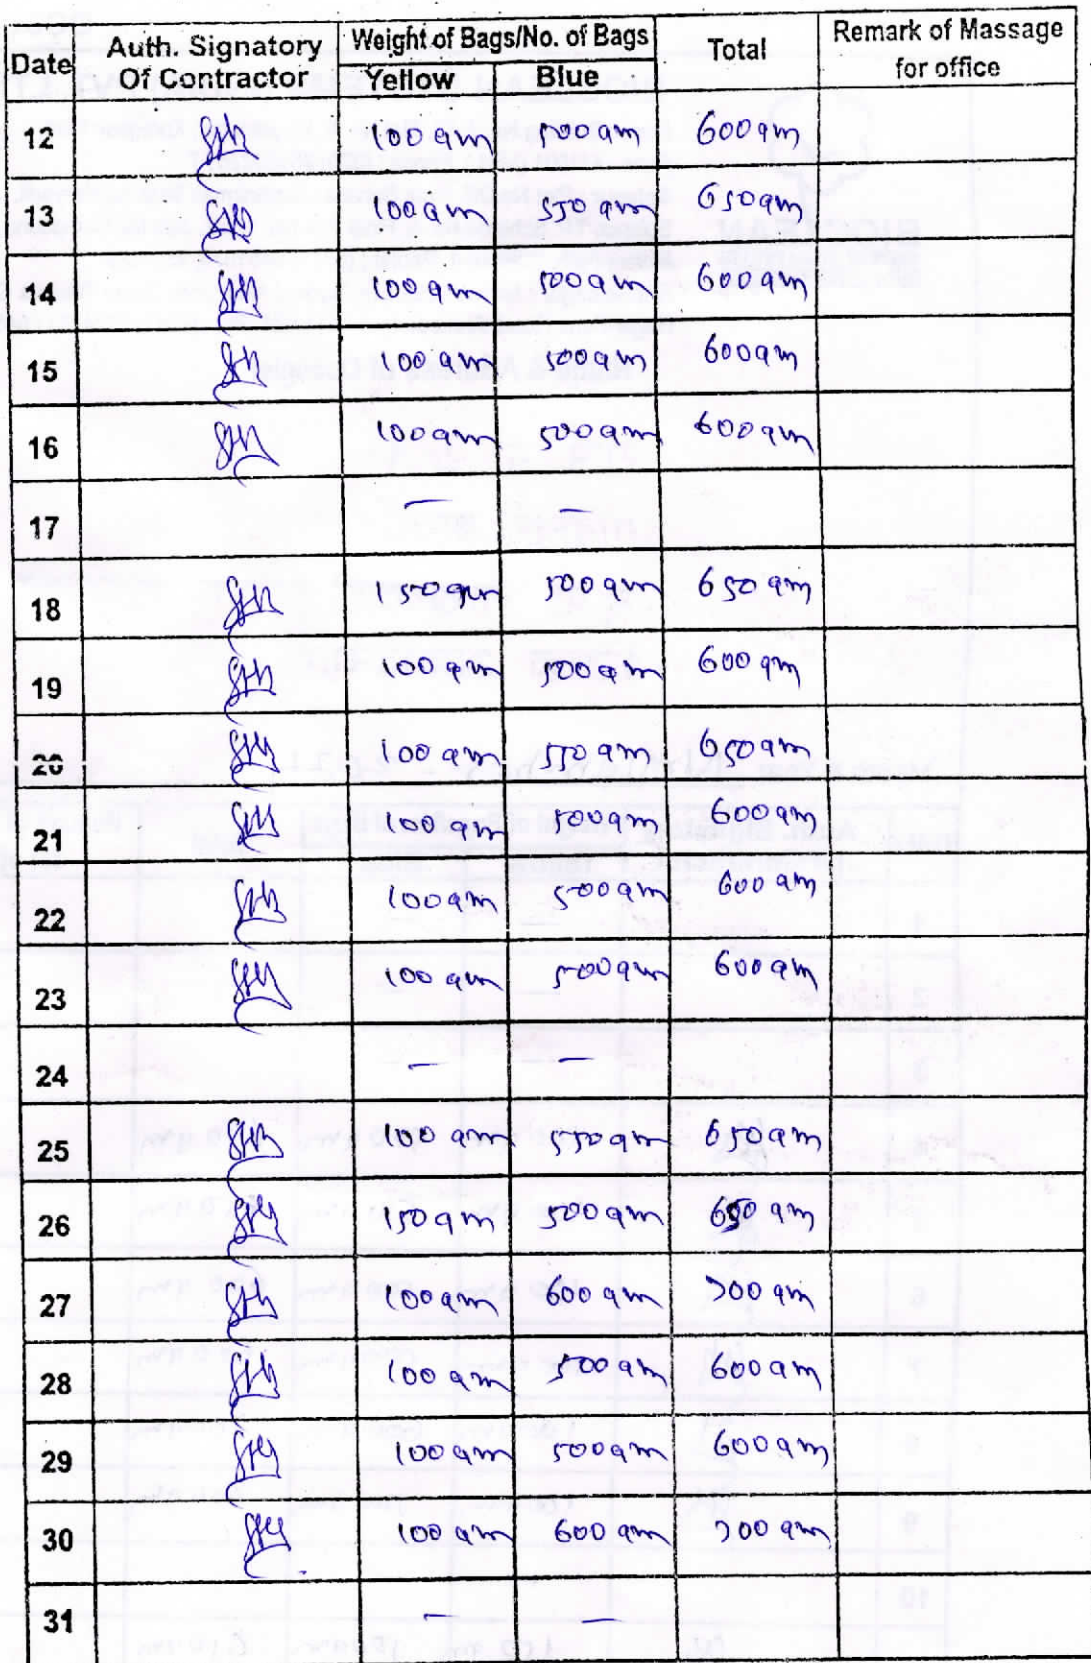 Date Auth. Signatory Of Contractor Weight of Bags/No. of Bags Total Remark of Massage for office
Yellow Blue
12 100 gm 500 gm 600 gm
13 100 gm 550 gm 650 gm
14 100 gm 500 gm 600 gm
15 100 gm 500 gm 600 gm
16 100 gm 500 gm 600 gm
17 — —
18 150 gm 500 gm 650 gm
19 100 gm 500 gm 600 gm
20 100 gm 550 gm 650 gm
21 100 gm 500 gm 600 gm
22 100 gm 500 gm 600 gm
23 100 gm 500 gm 600 gm
24 — —
25 100 gm 550 gm 650 gm
26 150 gm 500 gm 650 gm
27 100 gm 600 gm 700 gm
28 100 gm 500 gm 600 gm
29 100 gm 500 gm 600 gm
30 100 gm 600 gm 700 gm
31 — —